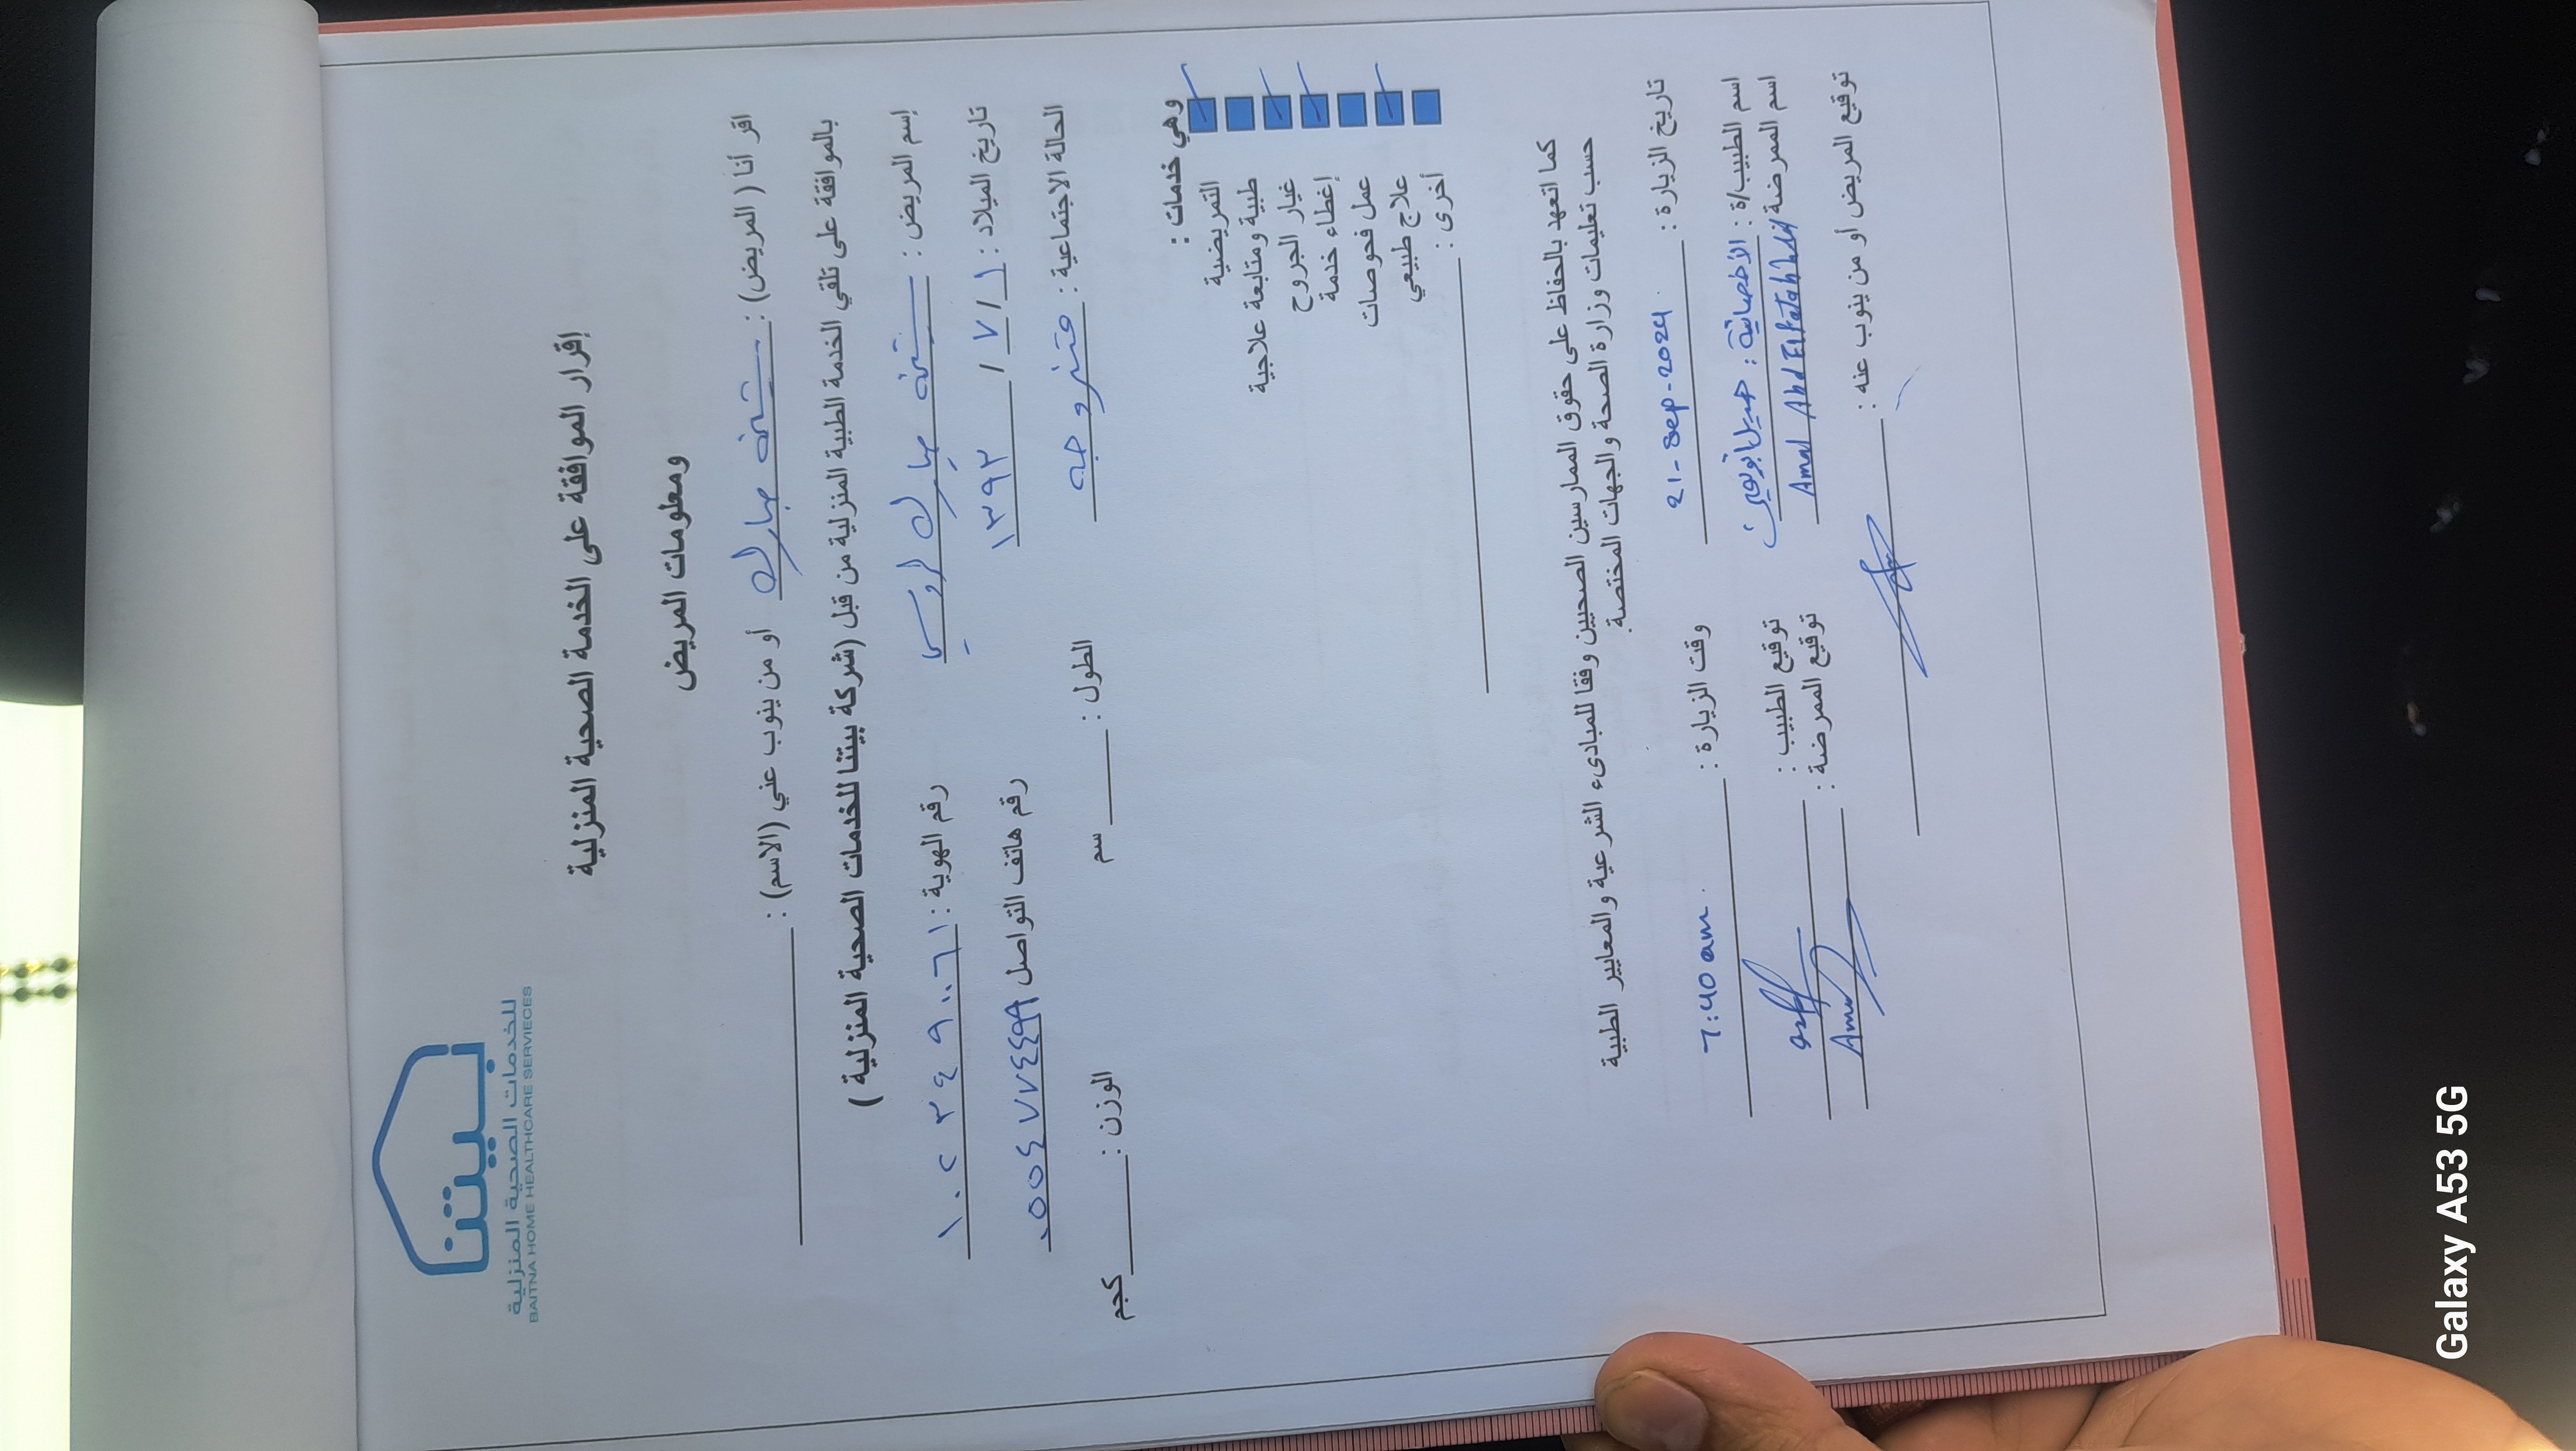 بيتنا
للخدمات الصحية المنزلية
BAITNA HOME HEALTHCARE SERVIECES
إقرار الموافقة على الخدمة الصحية المنزلية
ومعلومات المريض
اقر أنا ( المريض) : مبارك أو من ينوب عني (الاسم) :
بالموافقة على تلقي الخدمة الطبية المنزلية من قبل (شركة بيتنا للخدمات الصحية المنزلية )
إسم المريض : مبارك رقم الهوية :
تاريخ الميلاد : ١ / ٧ / ١٣٩٢ رقم هاتف التواصل
الحالة الاجتماعية : متزوجه الطول : سم الوزن : كجم
وهي خدمات :
التمريضية
طبية ومتابعة علاجية
غيار الجروح
إغطاء خدمة
عمل فحوصات
علاج طبيعي
أخرى :
كما اتعهد بالحفاظ على حقوق الممارسين الصحيين وفقا للمبادىء الشرعية والمعايير الطبية
حسب تعليمات وزارة الصحة والجهات المختصة.
تاريخ الزيارة : 21-Sep-2024 وقت الزيارة : 7:40 am
اسم الطبيب/ة : الأخصائية : توقيع الطبيب :
اسم الممرضة Amal Abd Elfatah توقيع الممرضة :
توقيع المريض أو من ينوب عنه :
Galaxy A53 5G